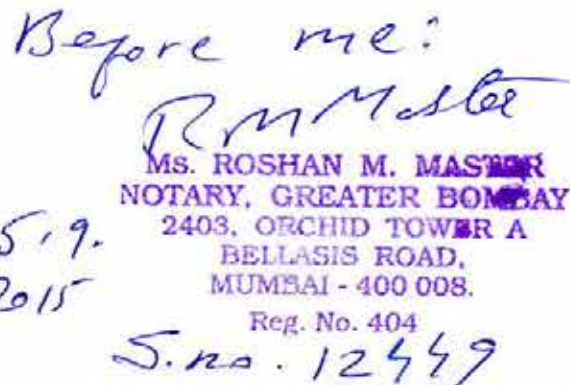 Before me:
R M Master
Ms. ROSHAN M. MASTER
NOTARY, GREATER BOMBAY
2403, ORCHID TOWER A
5.9.
BELLASIS ROAD,
2015
MUMBAI - 400 008.
Reg. No. 404
S.no. 12449